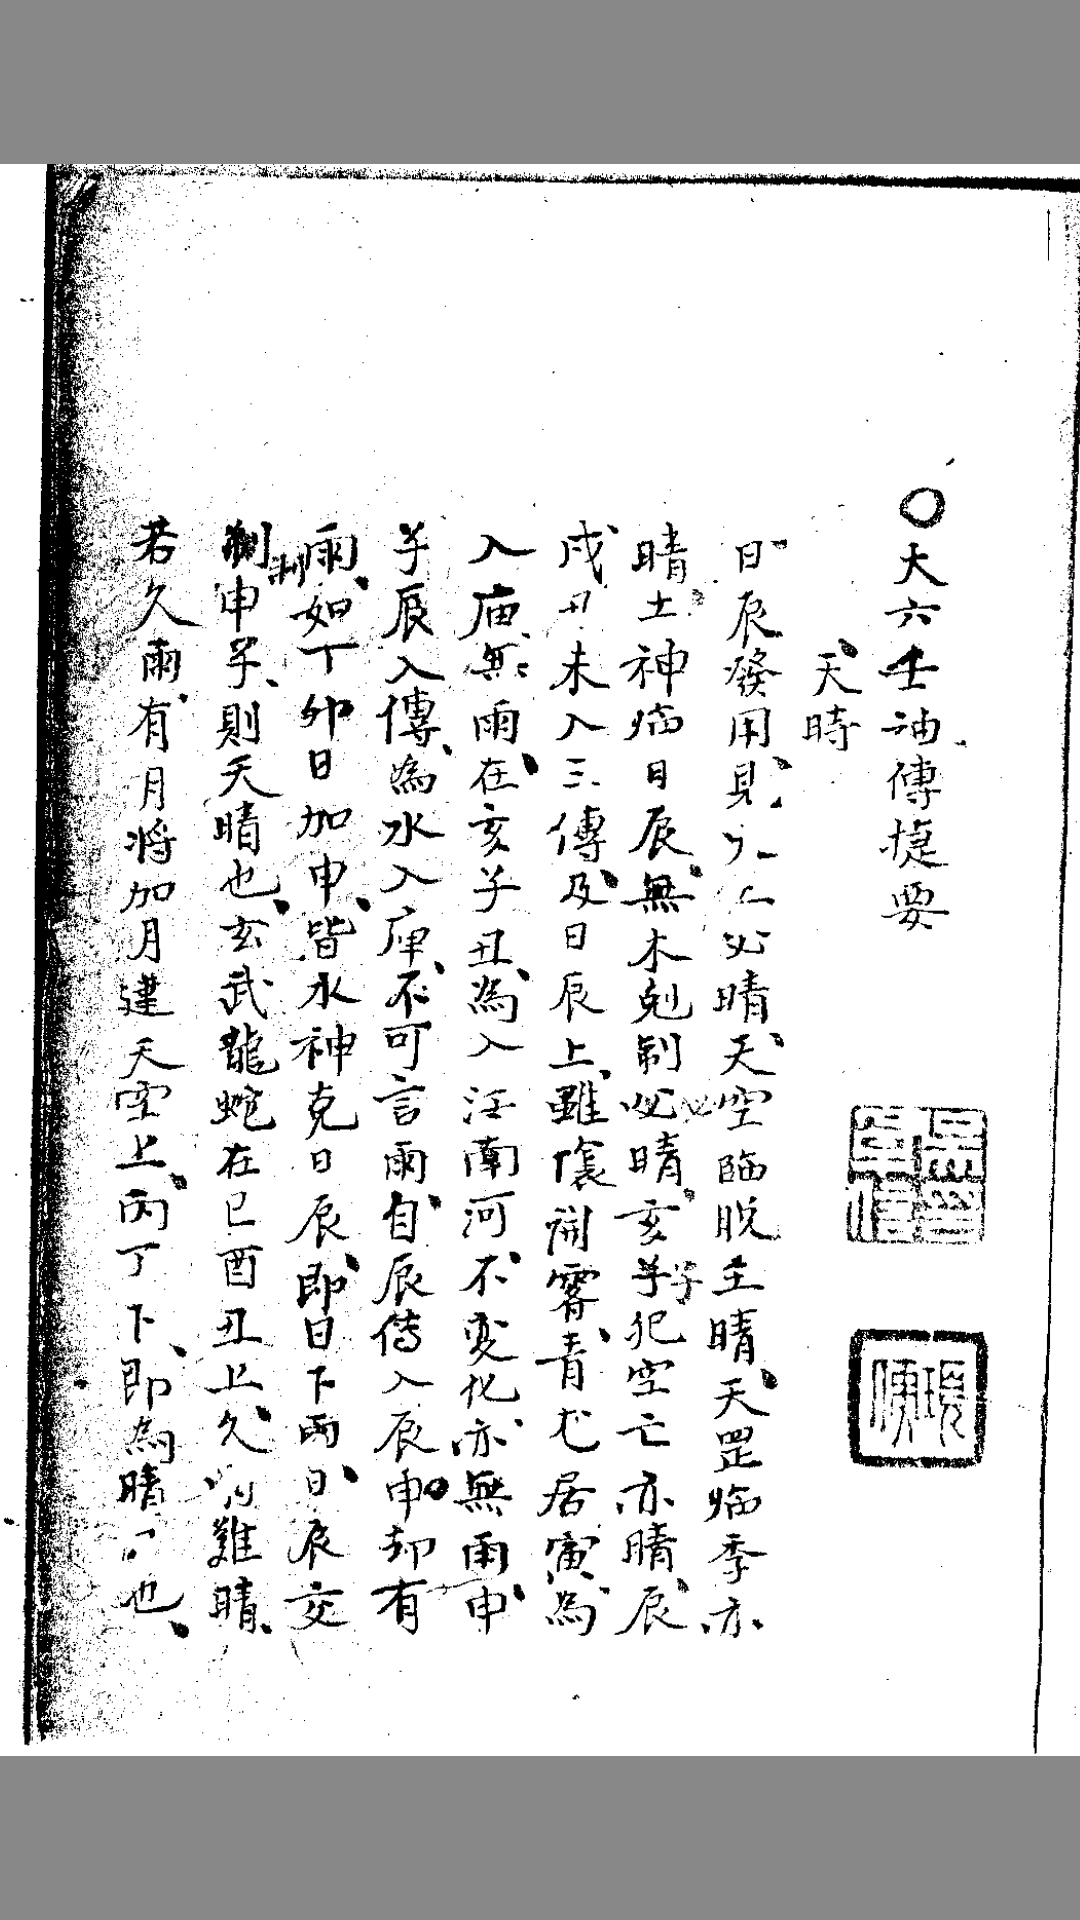 〇大六壬神傳捷要
天時
日辰發用見必晴天空臨脫主晴天罡临季亦
晴土神临日辰無木剋制必晴亥子犯空亡亦晴辰
戌丑未入三傳及日辰上雖陰開霽青龙居寅為
入庙無雨在亥子丑為入江南河不变化亦無雨申
子辰入傳為水入庫不可言雨自辰傳入辰申却有
雨如丁卯日加申皆水神克日辰即日下雨日辰交
制申子則天晴也玄武龍蛇在巳酉丑上久難晴
若久雨有月將加月建天空上丙丁下即為晴也